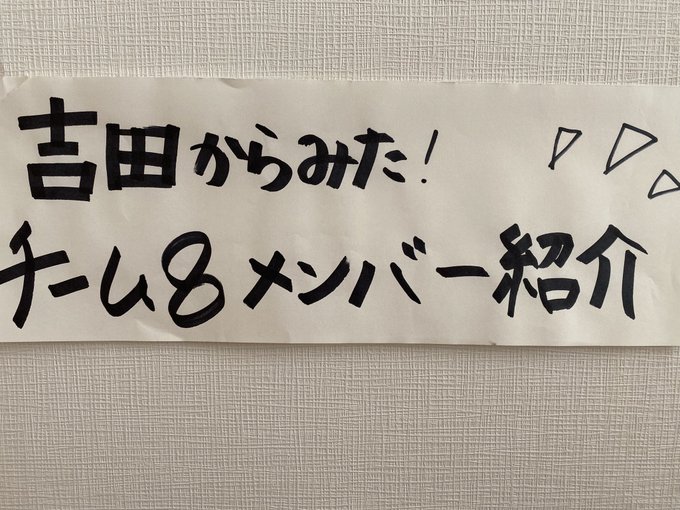 吉田からみた!
チーム8メンバー紹介